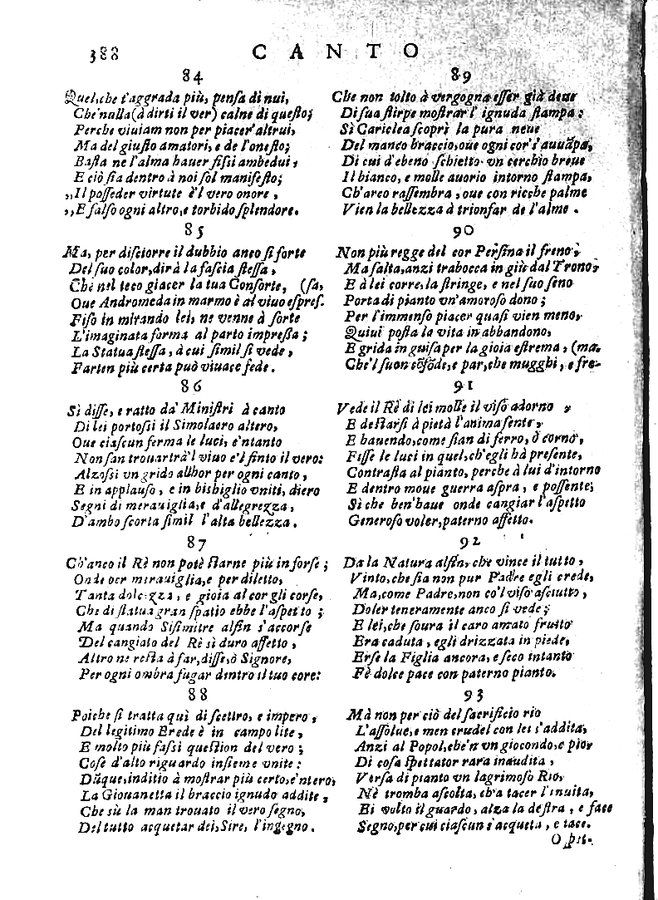 388 CANTO
84
Quel, che t'aggrada più, pensa di nui,
Che nulla (à dirti il ver) calne di questo;
Perche viuiam non per piacer' altrui,
Ma del giusto amatori, e de l'onesto;
Basta ne l'alma hauer fissi ambedui,
E ciò sia dentro à noi sol manifesto;
,,Il posseder virtute è'l vero onore,
,,E falso ogni altro, e torbido splendore.
85
Ma, per disciorre il dubbio anco sì forte
Del suo color, dirà la fascia stessa,
Chè nel teco giacer la tua Consorte, (sa,
Oue Andromeda in marmo è al viuo espres.
Fiso in mirando lei, ne venne à sorte
L'imaginata forma al parto impressa;
La Statua stessa, à cui simil si vede,
Farten più certa può viuace fede.
86
Sì disse, e ratto da' Ministri à canto
Di lei portossi il Simolacro altero,
Oue ciascun ferma le luci, e'ntanto
Non san trouar trà'l viuo e'l finto il vero:
Alzossi vn grido allhor per ogni canto,
E in applauso, e in bisbiglio vniti, diero
Segni di merauiglia, e d'allegrezza,
D'ambo scorta simil l'alta bellezza.
87
Ch'anco il Rè non potè starne più in forse;
Onde per merauiglia, e per diletto,
Tanta dolcezza, e gioia al cor gli corse,
Che di statua gran spatio ebbe l'aspetto;
Ma quando Sisimitre alfin s'accorse
Del cangiato del Rè sì duro affetto,
Altro ne resta à far, disse, ò Signore,
Per ogni ombra fugar dentro il tuo core:
88
Poiche si tratta quì di scettro, e impero,
Del legitimo Erede è in campo lite,
E molto più fassi question del vero;
Cose d'alto riguardo insieme vnite:
Dũque, inditio à mostrar più certo, e'ntero,
La Giouanetta il braccio ignudo addite,
Che sù la man trouato il vero segno,
Del tutto acquetar dei, Sire, l'ingegno.
89
Che non tolto à vergogna esser già deue
Di sua stirpe mostrar l'ignuda stampa;
Sì Cariclea scoprì la pura neue
Del manco braccio, oue ogni cor s'auuãpa,
Di cui d'ebeno schietto vn cerchio breue
Il bianco, e molle auorio intorno stampa,
Ch'arco rassembra, oue con ricche palme
Vien la bellezza à trionfar de l'alme.
90
Non più regge del cor Persina il freno;
Ma salta, anzi trabocca in giù dal Trono,
E à lei corre, la stringe, e nel suo seno
Porta di pianto vn'amoroso dono;
Per l'immenso piacer quasi vien meno,
Quiui posta la vita in abbandono,
E grida in guisa per la gioia estrema, (ma.
Che'l suon cõfõde, e par, che mugghi, e fre-
91
Vede il Rè di lei molle il viso adorno,
E destarsi à pietà l'anima sente,
E hauendo, come sian di ferro, ò corno,
Fisse le luci in quel, ch'egli hà presente,
Contrasta al pianto, perche à lui d'intorno
E dentro moue guerra aspra, e possente;
Sì che ben'haue onde cangiar l'aspetto
Generoso voler, paterno affetto.
92
Da la Natura alfin, che vince il tutto,
Vinto, che sia non pur Padre egli crede,
Ma, come Padre, non co'l viso asciutto,
Doler teneramente anco si vede;
E lei, che soura il caro amato frutto
Era caduta, egli drizzata in piede,
Erse la Figlia ancora, e seco intanto
Fè dolce pace con paterno pianto.
93
Mà non per ciò del sacrificio rio
L'assolue, e men crudel con lei s'addita,
Anzi al Popol, che'n vn giocondo, e pio,
Di cosa spettator rara inaudita,
Versa di pianto vn lagrimoso Rio,
Nè tromba ascolta, ch'a tacer l'inuita,
Ei volto il guardo, alza la destra, e face
Segno, per cui ciascun s'acqueta, e tace.